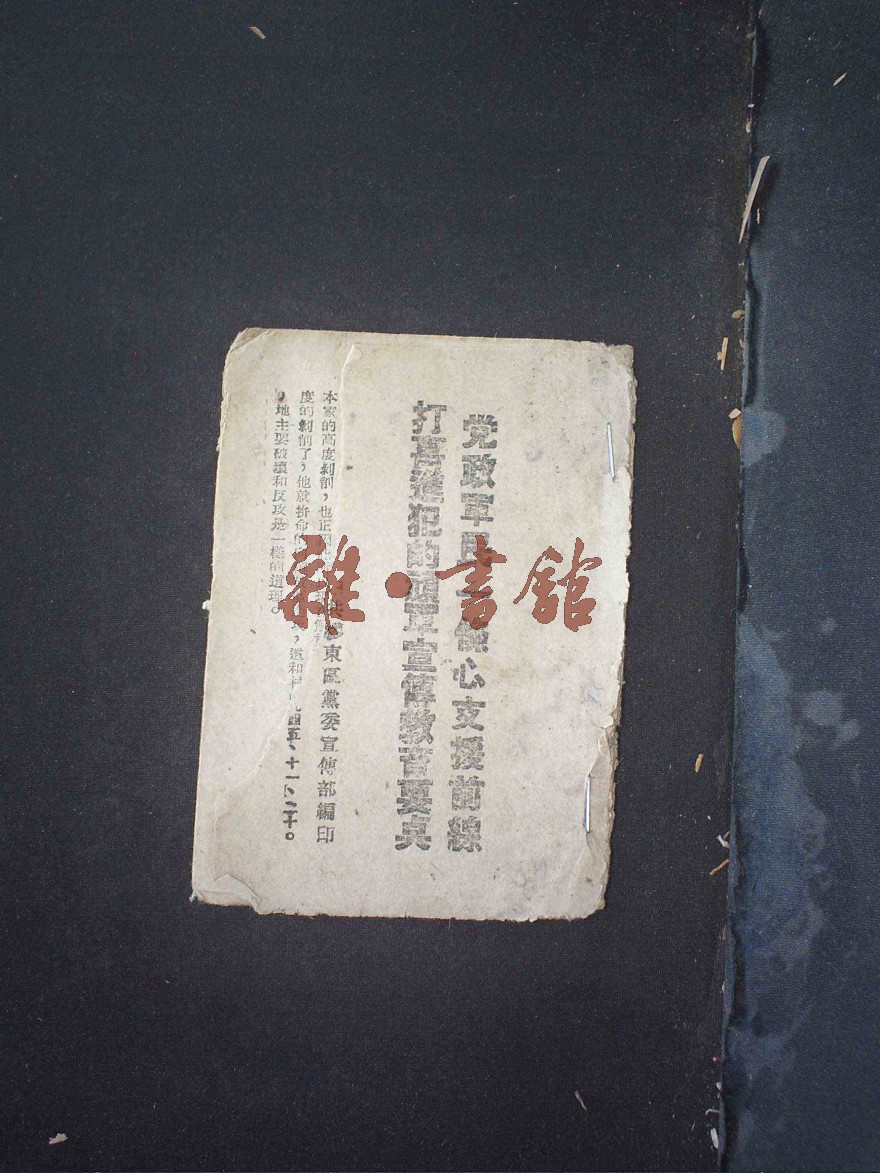 党政军民一條心支援前線
打垮進犯的頑军宣傳教育要点
東區黨委宣傳部編印
四五、十一、二十。
本家的高度剝削，也正因
度的剝削了，他就拚命的
，這和村
地主要破壞和反攻是一樣的道理。
雜·書舘